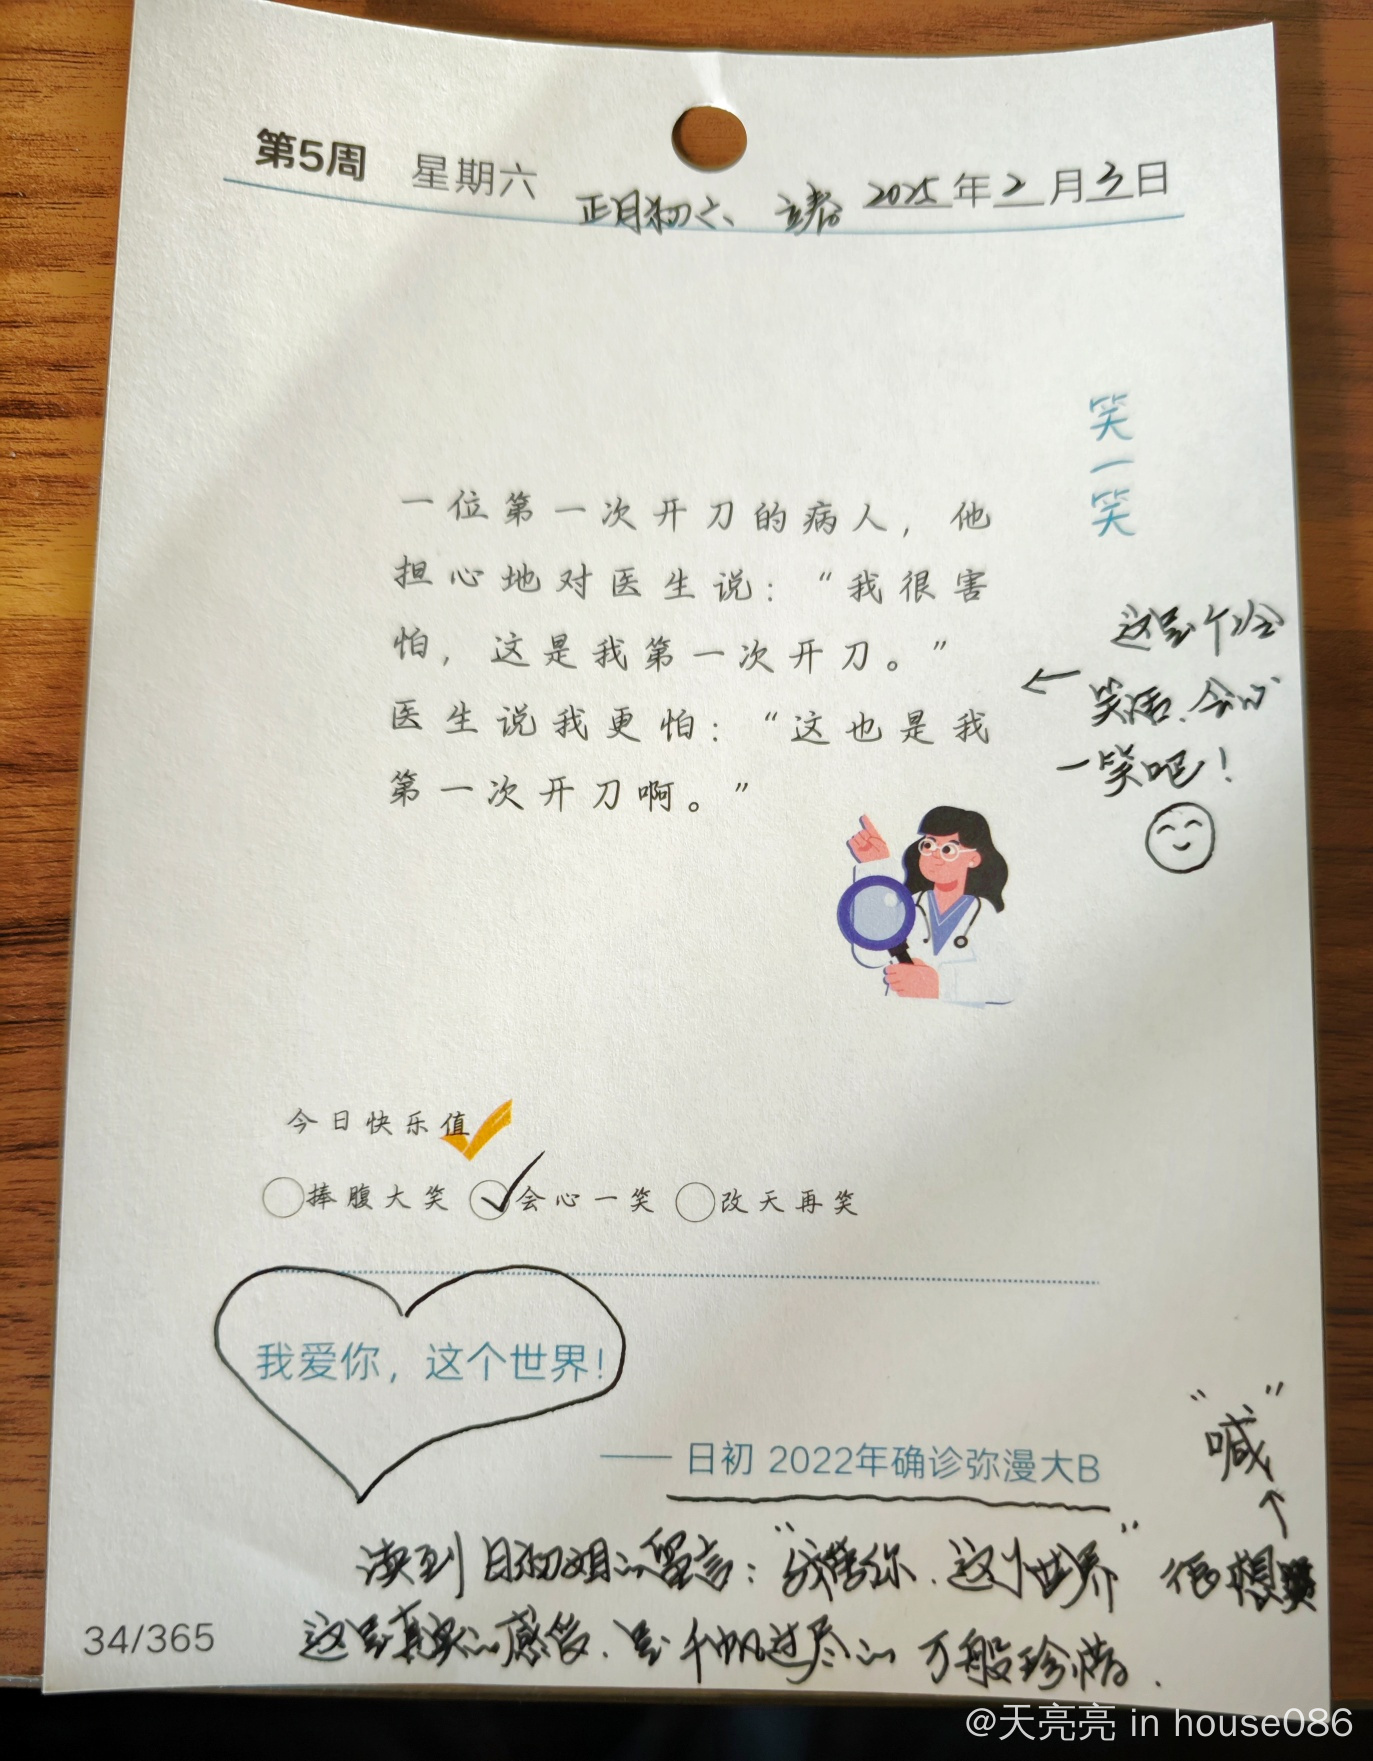 第5周 星期六 正月初六 立春 2025年2月3日
笑一笑
一位第一次开刀的病人，他
担心地对医生说：“我很害
怕，这是我第一次开刀。”
医生说我更怕：“这也是我
第一次开刀啊。”
这是个冷
← 笑话，会心
一笑吧！
今日快乐值
捧腹大笑 会心一笑 改天再笑
我爱你，这个世界！
—— 日初 2022年确诊弥漫大B
“喊”
读到日初姐的留言：“我爱你，这个世界” 很想
这是真实的感受，是千帆过尽的万般珍惜。
34/365
@天亮亮 in house086